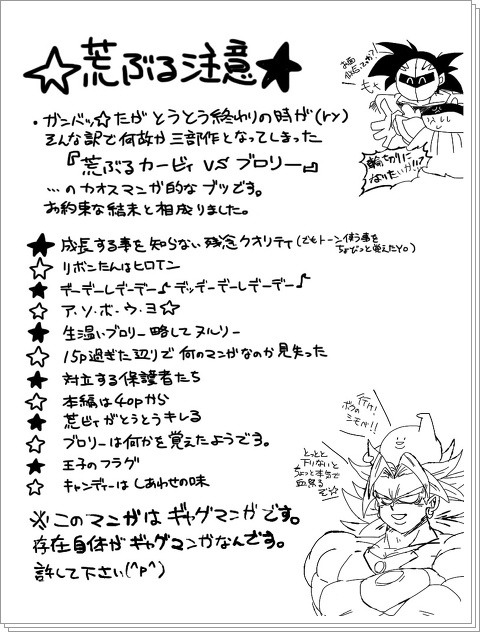 ☆荒ぶる注意★
・ガンバッ☆たが とうとう終わりの時が(ry)
そんな訳で何故か三部作となってしまった
『荒ぶるカービィ VS ブロリー』
…のカオスマンガ的なブツです。
お約束な結末と相成りました。
★ 成長する事を知らない残念クオリティ(でもトーン使う事を
ちょびっと覚えたYO)
☆ リボンたんはヒロイン
★ デーデーレデーデー♪デッデーデーレデーデー♪
☆ ア・ソ・ボ・ウ・ヨ☆
★ 生温いブロリー略してヌルリー
☆ 15p過ぎた辺りで何のマンガなのか見失った
★ 対立する保護者たち
☆ 本編は40pから
★ 荒ビィがとうとうキレる
☆ ブロリーは何かを覚えたようです。
★ 王子のフラグ
☆ キャンディーはしあわせの味
※このマンガはギャグマンガです。
存在自体がギャグマンガなんです。
許して下さい(^p^)
お面
輪切りに
なりたいか!!?
行け!
ボクの
シモベ!!
とっとと
下りないと
ちょっと本気で
血祭る
ぞ☆